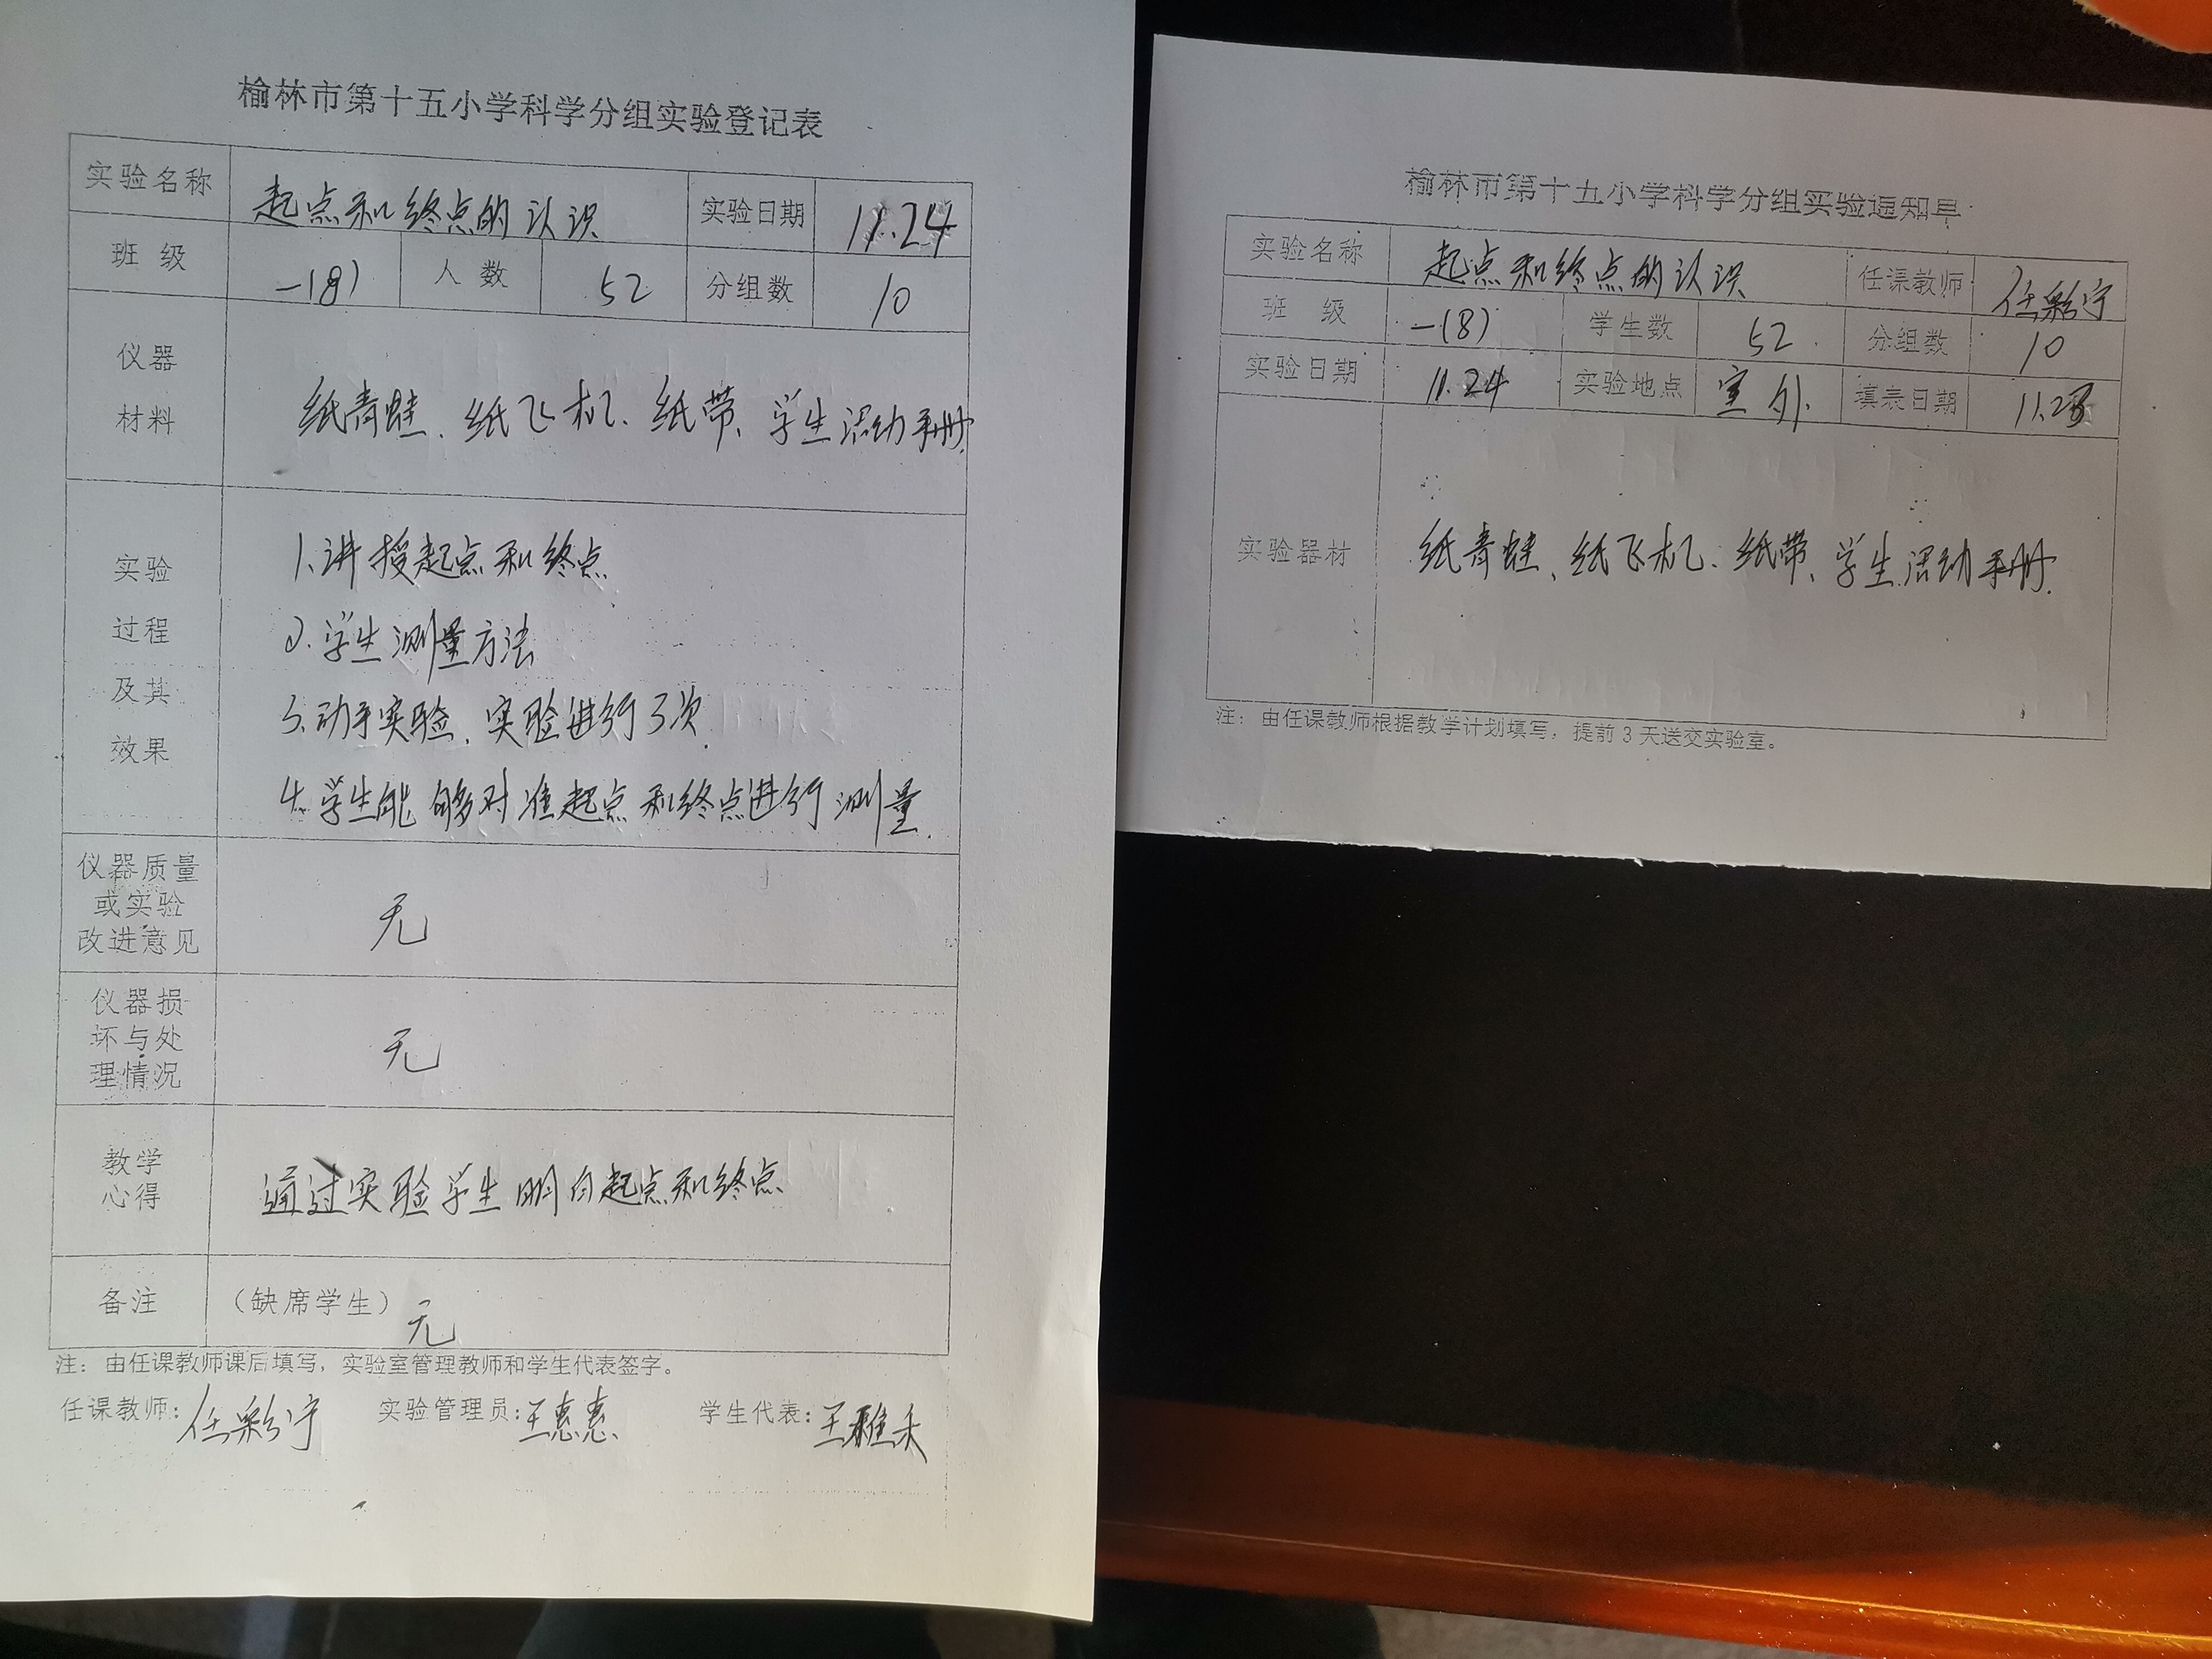 榆林市第十五小学科学分组实验登记表
实验名称 起点和终点的认识 实验日期 11.24
班 级 一(8) 人 数 52 分组数 10
仪器
材料
纸青蛙、纸飞机、纸带、学生活动手册.
实验
过程
及其
效果
1.讲授起点和终点
2.学生测量方法
3.动手实验、实验进行3次.
4.学生能够对准起点和终点进行测量.
仪器质量
或实验
改进意见
无
仪器损
坏与处
理情况
无
教学
心得
通过实验学生明白起点和终点
备注 (缺席学生) 无
注：由任课教师课后填写，实验室管理教师和学生代表签字。
任课教师: 任彩宁 实验管理员: 王惠惠 学生代表: 王雅
榆林市第十五小学科学分组实验通知单
实验名称 起点和终点的认识 任课教师 任彩宁
班 级 一(8) 学生数 52 分组数 10
实验日期 11.24 实验地点 室外 填表日期 11.23
实验器材 纸青蛙、纸飞机、纸带、学生活动手册.
注：由任课教师根据教学计划填写，提前3天送交实验室。